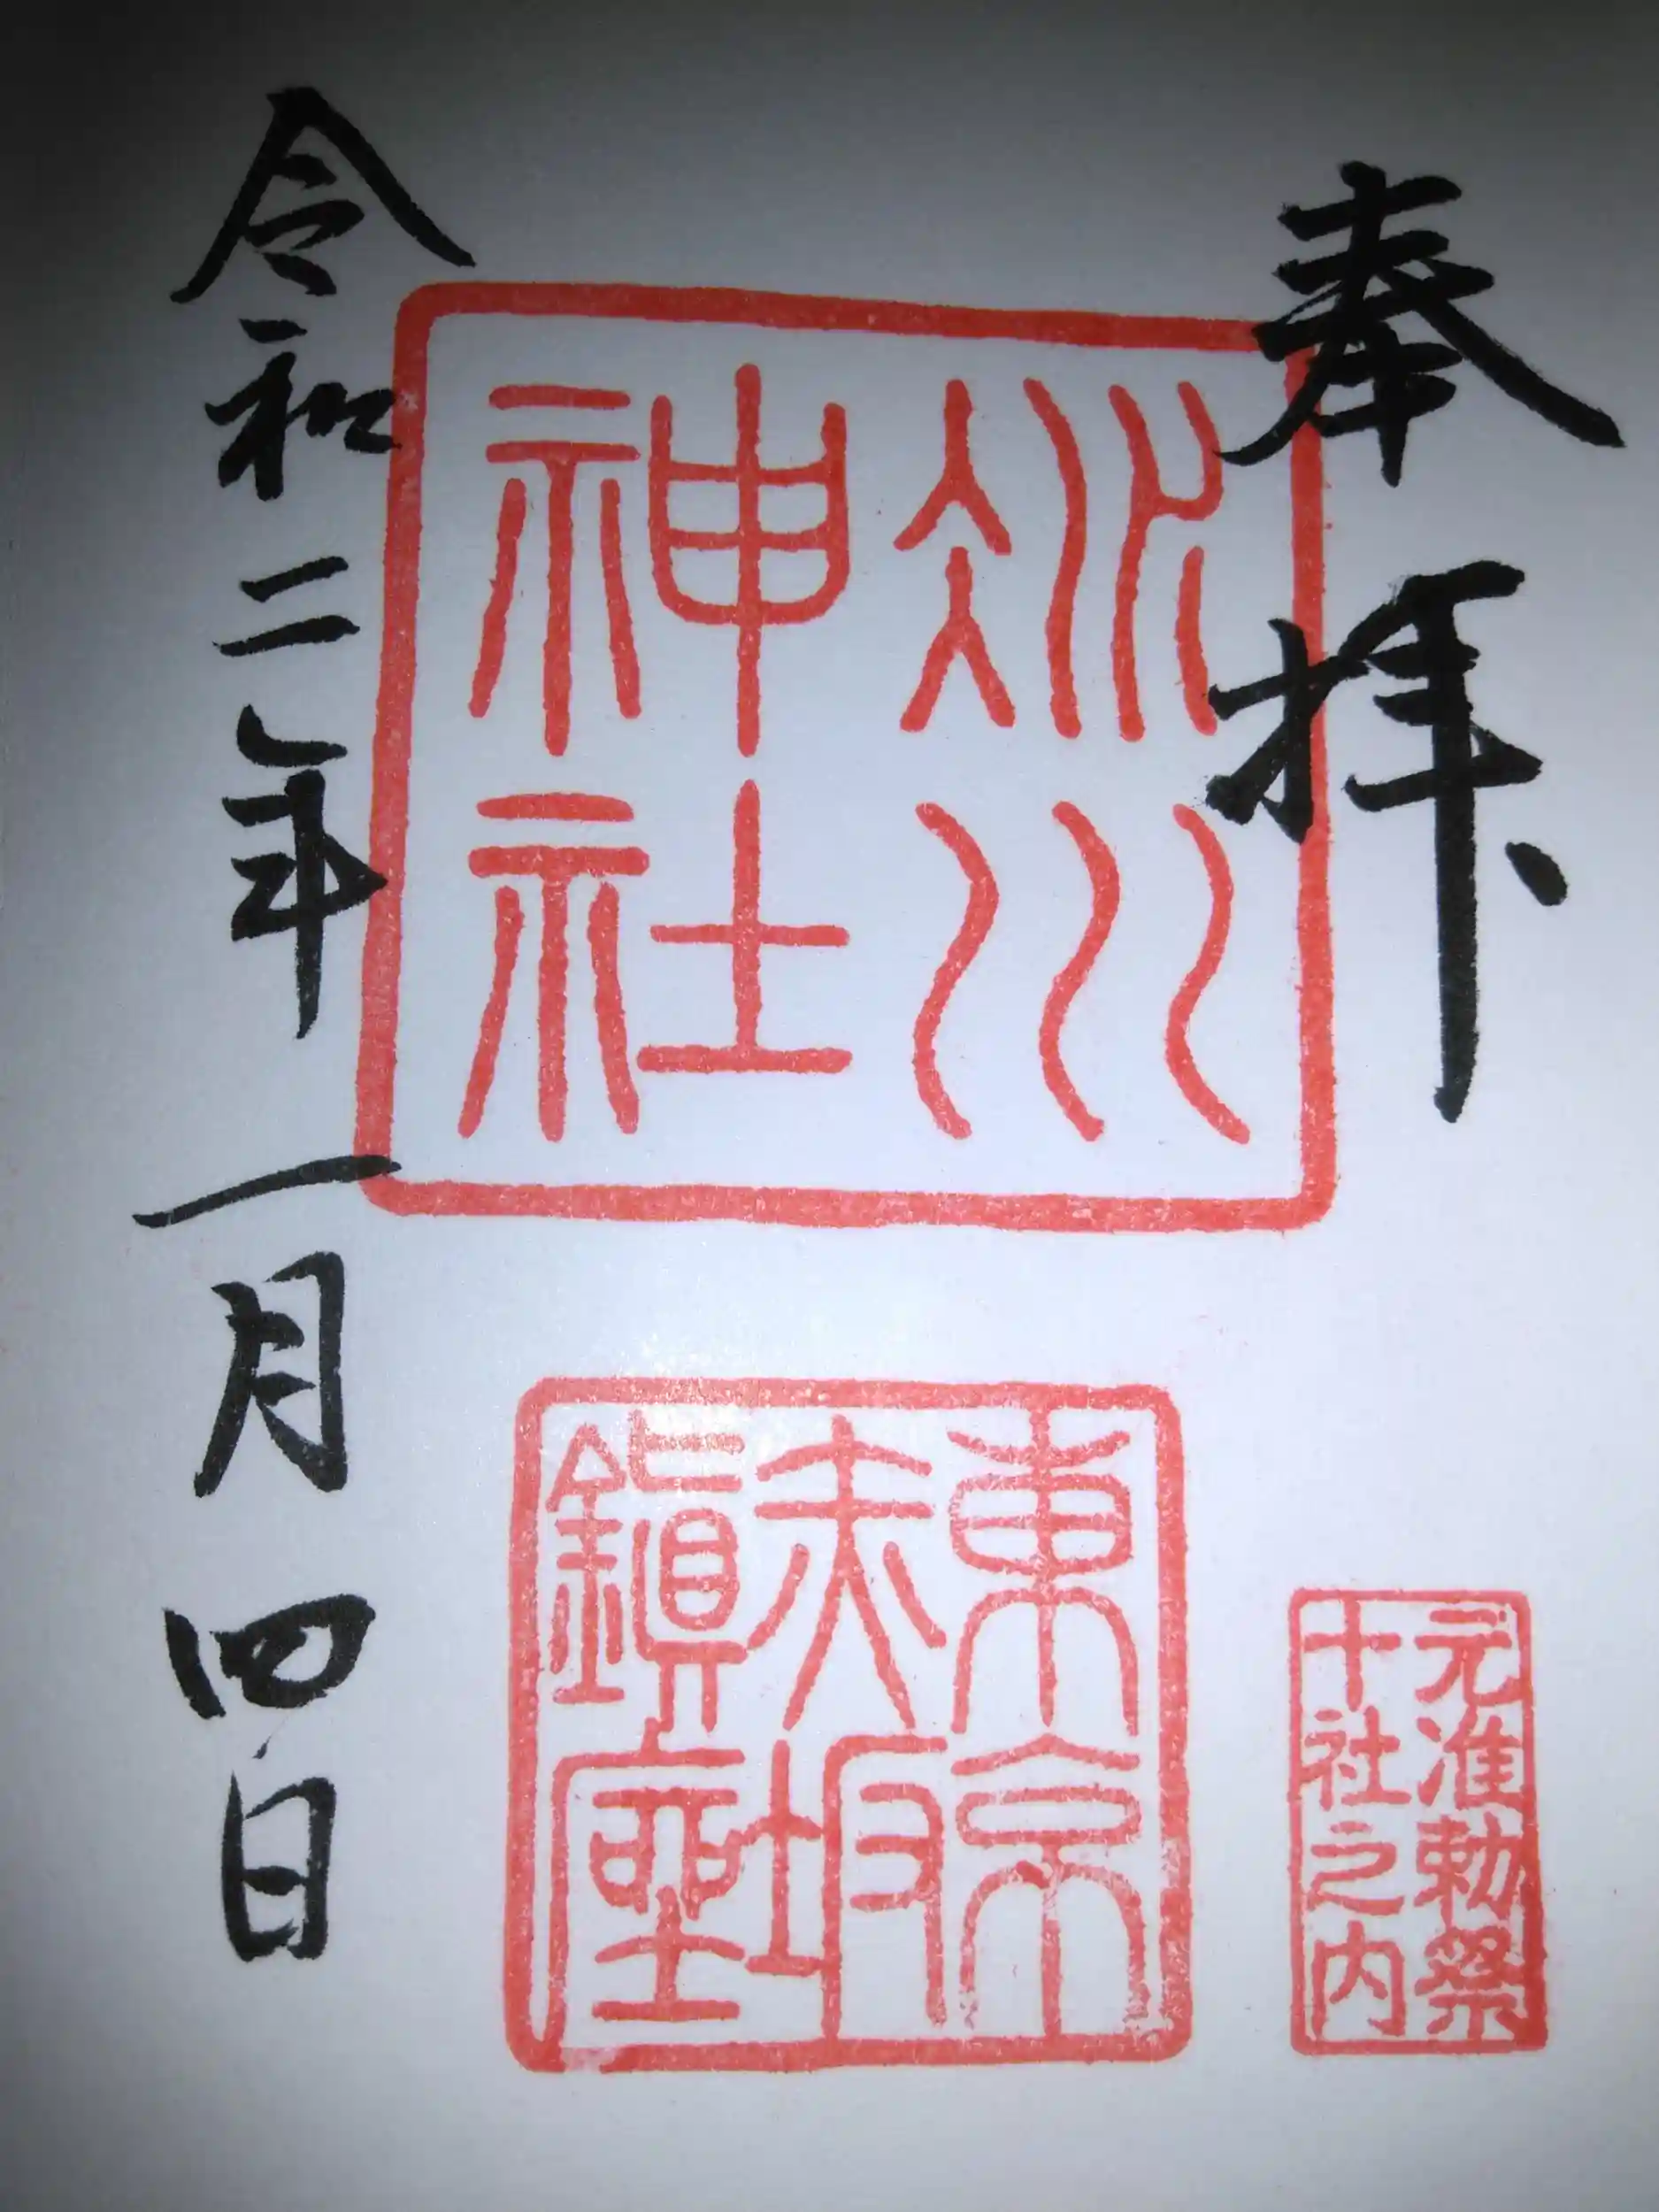 奉拝
氷川
神社
元准勅祭
十社之内
東京
赤坂
鎮座
令和二年一月四日